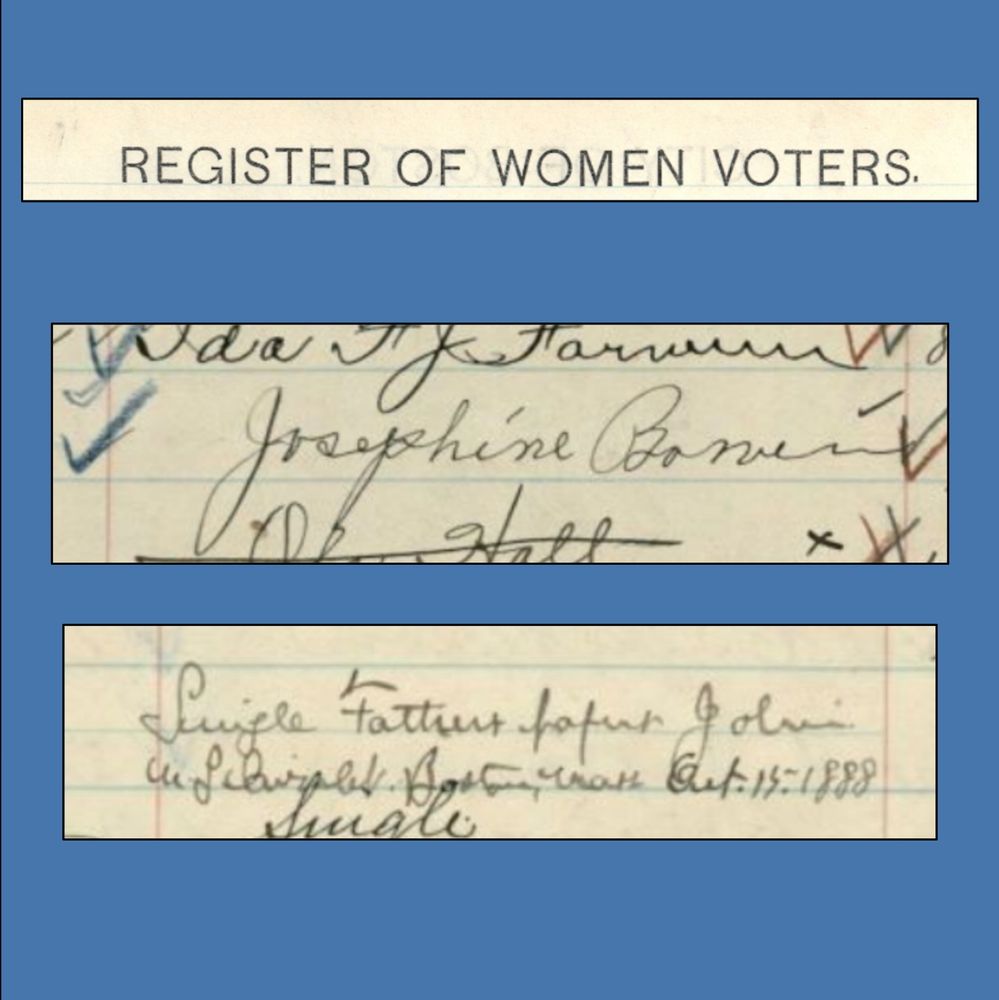 REGISTER OF WOMEN VOTERS.
Ida F. J.
Josephine
Hall
Single Fathers papers John
Boston, Mass Oct. 15. 1888
Single